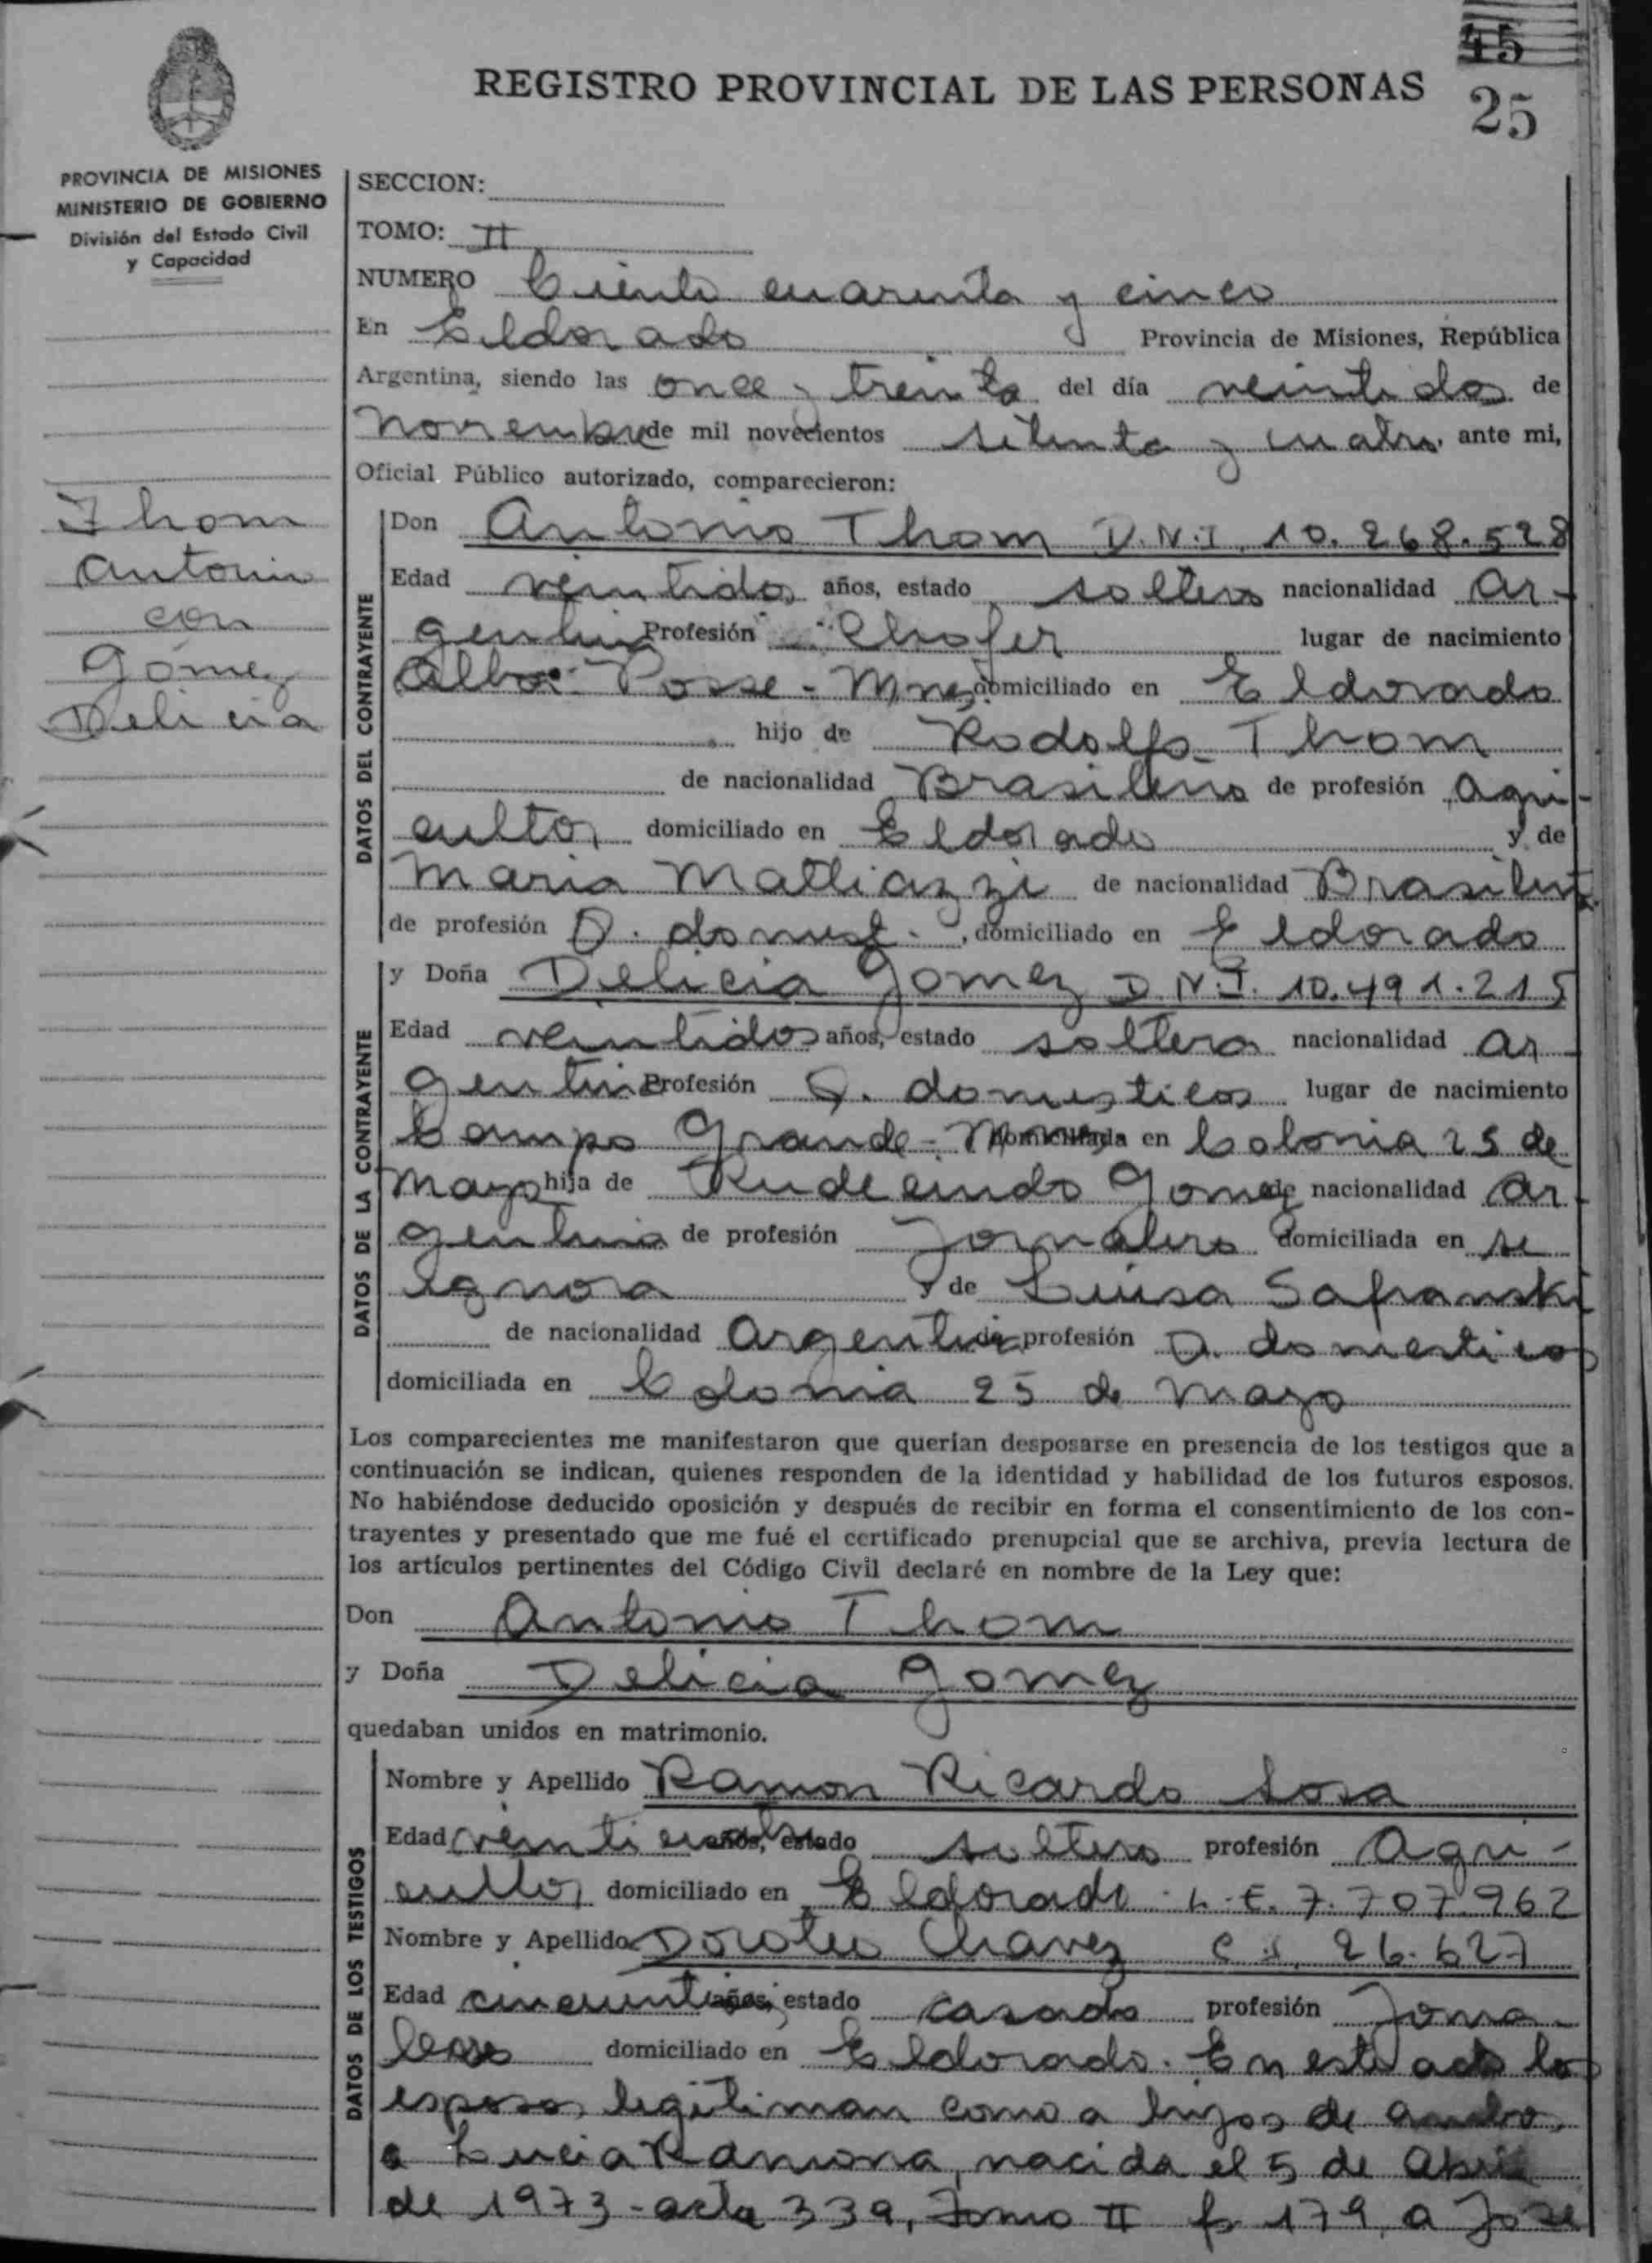 45
REGISTRO PROVINCIAL DE LAS PERSONAS
25
PROVINCIA DE MISIONES
MINISTERIO DE GOBIERNO
División del Estado Civil
y Capacidad
Thom
Antonio
con
Gómez
Delicia
SECCION:
TOMO: II
NUMERO Ciento cuarenta y cinco
En Eldorado Provincia de Misiones, República
Argentina, siendo las once y treinta del día veintidos de
Noviembre de mil novecientos setenta y cuatro, ante mi,
Oficial Público autorizado, comparecieron:
DATOS DEL CONTRAYENTE
Don Antonio Thom D.N.I. 10.268.528
Edad veintidos años, estado soltero nacionalidad Ar-
gentina Profesión Chofer lugar de nacimiento
Alba Posse - Mnes domiciliado en Eldorado
hijo de Rodolfo Thom
de nacionalidad Brasilero de profesión Agri-
cultor domiciliado en Eldorado y de
Maria Mattiazzi de nacionalidad Brasilera
de profesión Q. domest. , domiciliado en Eldorado
DATOS DE LA CONTRAYENTE
y Doña Delicia Gomez D.N.I. 10.491.215
Edad veintidos años, estado soltera nacionalidad Ar-
gentina Profesión Q. domesticos lugar de nacimiento
Campo Grande - Mnes domiciliada en Colonia 25 de
Mayo hija de Rudecindo Gomez de nacionalidad Ar-
gentina de profesión Jornalero domiciliada en se
ignora y de Luisa Safranski
de nacionalidad Argentina de profesión Q. domesticos
domiciliada en Colonia 25 de Mayo
Los comparecientes me manifestaron que querían desposarse en presencia de los testigos que a
continuación se indican, quienes responden de la identidad y habilidad de los futuros esposos.
No habiéndose deducido oposición y después de recibir en forma el consentimiento de los con-
trayentes y presentado que me fué el certificado prenupcial que se archiva, previa lectura de
los artículos pertinentes del Código Civil declaré en nombre de la Ley que:
Don Antonio Thom
y Doña Delicia Gomez
quedaban unidos en matrimonio.
DATOS DE LOS TESTIGOS
Nombre y Apellido Ramon Ricardo Sosa
Edad veinticuatro años, estado soltero profesión Agri-
cultor domiciliado en Eldorado - L.E. 7.707.962
Nombre y Apellido Doroteo Chavez C.I. 26.627
Edad años, estado casado profesión Jorna-
lero domiciliado en Eldorado. En este acto los
esposos legitiman como a hijos de ambos,
a Lucia Ramona, nacida el 5 de Abril
de 1973 - acta 339, Tomo II fo 179, a Jose